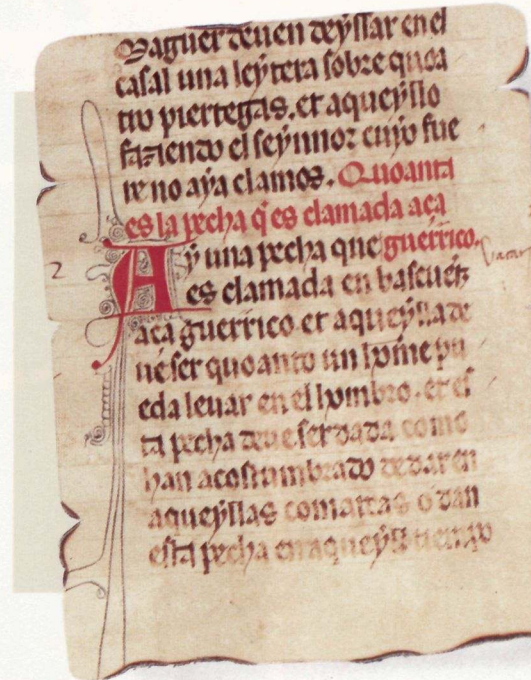 Maguer deuen deyssar en el
casal una leytera sobre quoa
tro piertegas. et aqueyllo
faziendo el seynnor cuyo fue
re no aya clamos. Quoanta
es la pecha q̃ es clamada aça
Ay una pecha que guerrico.
es clamada en bascuẽz
aça guerrico et aqueylla de
ue ser quoanto un home pu
eda leuar en el hombro. et es
ta pecha deue ser dada como
han acostumbrado de dar en
aqueyllas comarcas o dan
esta pecha en aqueyll tiempo
2